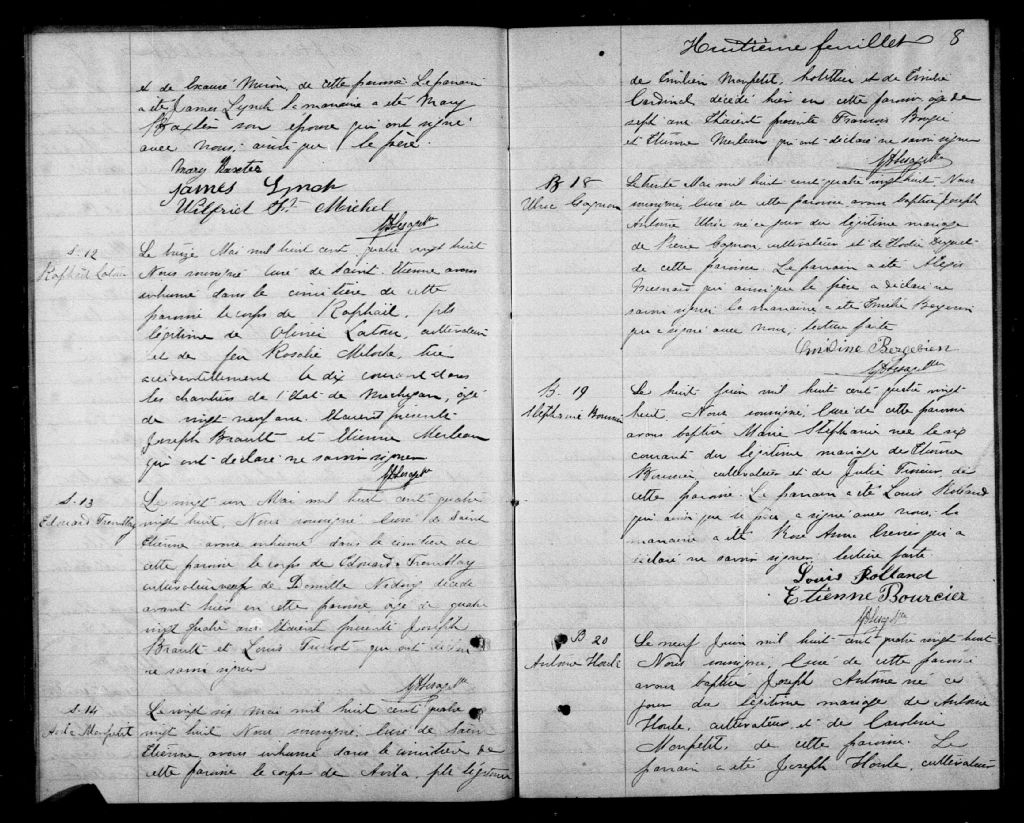 et de Exaurée Miron, de cette paroisse. Le parrain
a été James Lynch la marraine a été Mary
Baxter son épouse qui ont signé
avec nous, ainsi que le père.
Mary Baxter
James Lynch
Wilfrid St Michel
S. 12
Raphaël Latour
Le treize Mai mil huit cent quatre vingt huit
Nous soussigné curé de Saint Etienne avons
inhumé dans le cimetière de cette
paroisse le corps de Raphaël, fils
légitime de Olivier Latour, cultivateur
et de feu Rosalie Meloche, tué
accidentellement le dix courant dans
les chantiers de l'Etat de Michigan, âgé
de vingt neuf ans. Etaient présents
Joseph Brault et Etienne Merleau
qui ont déclaré ne savoir signer
S. 13
Edouard Tremblay
Le vingt un Mai mil huit cent quatre
vingt huit, Nous soussigné, Curé de Saint
Etienne avons inhumé dans le cimetière de
cette paroisse le corps de Edouard Tremblay
cultivateur veuf de Domitille décédé
avant hier en cette paroisse âgé de quatre
vingt quatre ans Etaient présents Joseph
Brault et Louis qui ont déclaré
ne savoir signer
S. 14
Avila Monpetit
Le vingt six mai mil huit cent quatre
vingt huit Nous soussigné, Curé de Saint
Etienne avons inhumé dans le cimetière de
cette paroisse le corps de Avila, fils légitime
Huitième feuillet 8
de Emilien Monpetit, hotellier et de Emilie
Cardinal décédé hier en cette paroisse, âgé de
sept ans Etaient présents François
et Etienne Merleau qui ont déclaré ne savoir signer
B 18
Ulric Gagnon
Le trente Mai mil huit cent quatre vingt huit Nous
soussigné, Curé de cette paroisse avons baptisé Joseph
Antoine Ulric né ce jour du légitime mariage
de Pierre Gagnon, cultivateur et de
de cette paroisse. Le parrain a été Alexis
qui ainsi que le père a déclaré ne
savoir signer la marraine a été Emilie Bergevin
qui a signé avec nous, lecture faite
Bergevin
B. 19
Stéphanie Bourcier
Le huit Juin mil huit cent quatre vingt
huit Nous soussigné, Curé de cette paroisse
avons baptisé Marie Stéphanie née le six
courant du légitime mariage de Etienne
Bourcier, cultivateur et de Julie
cette paroisse. Le parrain a été Louis Rolland
qui ainsi que le père a signé avec nous; la
marraine a été Rose Anna qui a
déclaré ne savoir signer lecture faite
Louis Rolland
Etienne Bourcier
B 20
Antoine Houle
Le neuf Juin mil huit cent quatre vingt huit
Nous soussigné, Curé de cette paroisse
avons baptisé Joseph Antoine né ce
jour du légitime mariage de Antoine
Houle, cultivateur et de Caroline
Monpetit, de cette paroisse. Le
parrain a été Joseph Houle, cultivateur